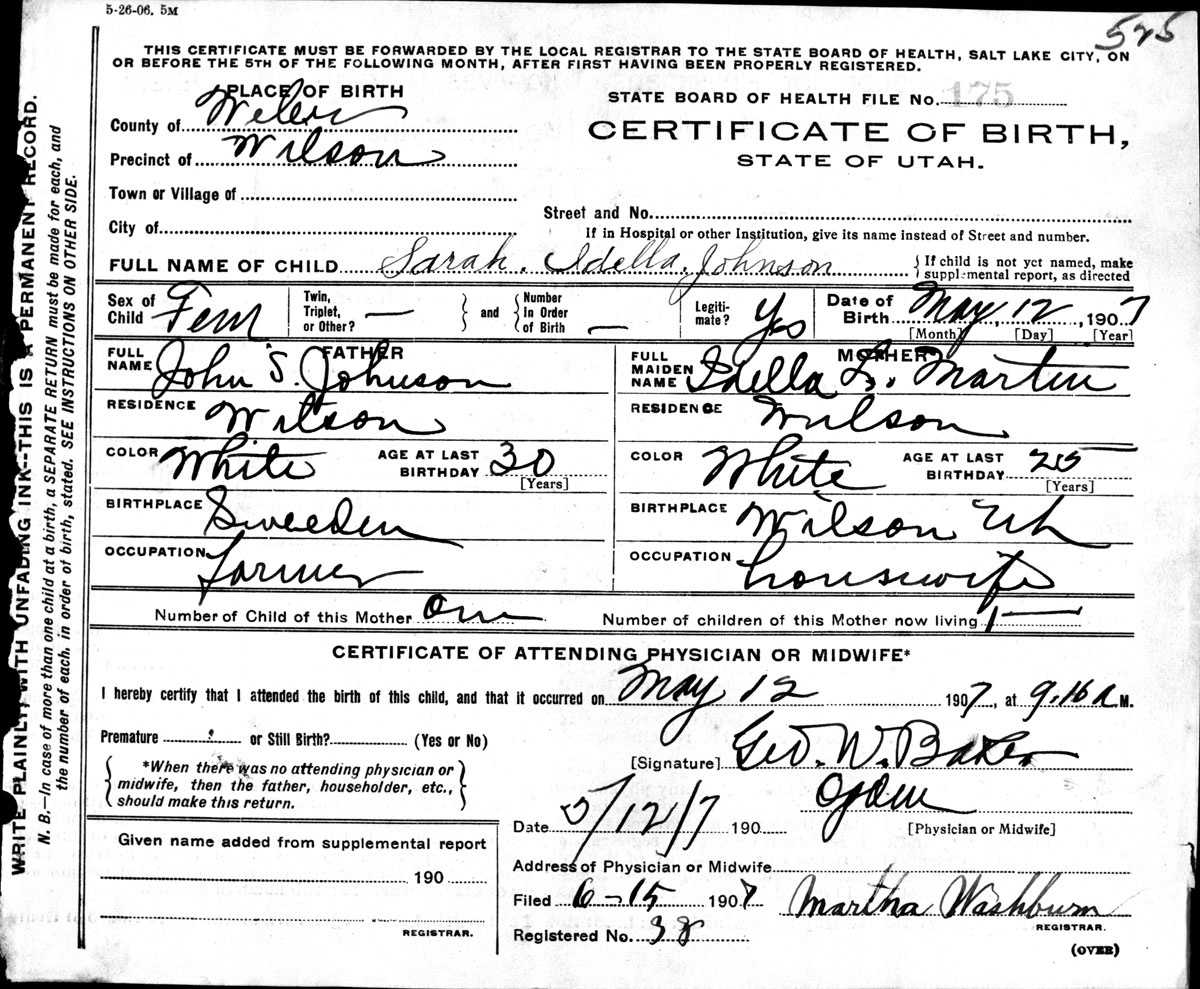 5-26-06. 5M
525
THIS CERTIFICATE MUST BE FORWARDED BY THE LOCAL REGISTRAR TO THE STATE BOARD OF HEALTH, SALT LAKE CITY, ON
OR BEFORE THE 5TH OF THE FOLLOWING MONTH, AFTER FIRST HAVING BEEN PROPERLY REGISTERED.
PLACE OF BIRTH
STATE BOARD OF HEALTH FILE No. 175
County of Weber
CERTIFICATE OF BIRTH,
Precinct of Wilson
STATE OF UTAH.
Town or Village of
Street and No.
City of
If in Hospital or other Institution, give its name instead of Street and number.
FULL NAME OF CHILD Sarah. Idella. Johnson { If child is not yet named, make supplemental report, as directed
Sex of Child Fem
Twin, Triplet, or Other? — } and { Number In Order of Birth —
Legiti-mate? Yes
Date of Birth May, 12, 1907
[Month] [Day] [Year]
FATHER
FULL NAME John S. Johnson
MOTHER
FULL MAIDEN NAME Idella L. Martin
RESIDENCE Wilson
RESIDENCE Wilson
COLOR White AGE AT LAST BIRTHDAY 30 [Years]
COLOR White AGE AT LAST BIRTHDAY 25 [Years]
BIRTHPLACE Sweeden
BIRTHPLACE Wilson Uth
OCCUPATION Farmer
OCCUPATION housewife
Number of Child of this Mother One
Number of children of this Mother now living 1—
CERTIFICATE OF ATTENDING PHYSICIAN OR MIDWIFE*
I hereby certify that I attended the birth of this child, and that it occurred on May 12 1907, at 9.16 a M.
Premature or Still Birth? (Yes or No)
[Signature] Geo. W. Baker
*When there was no attending physician or
midwife, then the father, householder, etc.,
should make this return.
Ogden
Date 5/12/7 190
[Physician or Midwife]
Given name added from supplemental report
190
REGISTRAR.
Address of Physician or Midwife
Filed 6-15 1907 Martha Washburn
REGISTRAR.
Registered No. 38
(OVER)
WRITE PLAINLY WITH UNFADING INK--THIS IS A PERMANENT RECORD.
N. B.—In case of more than one child at a birth, a SEPARATE RETURN must be made for each, and
the number of each, in order of birth, stated. SEE INSTRUCTIONS ON OTHER SIDE.